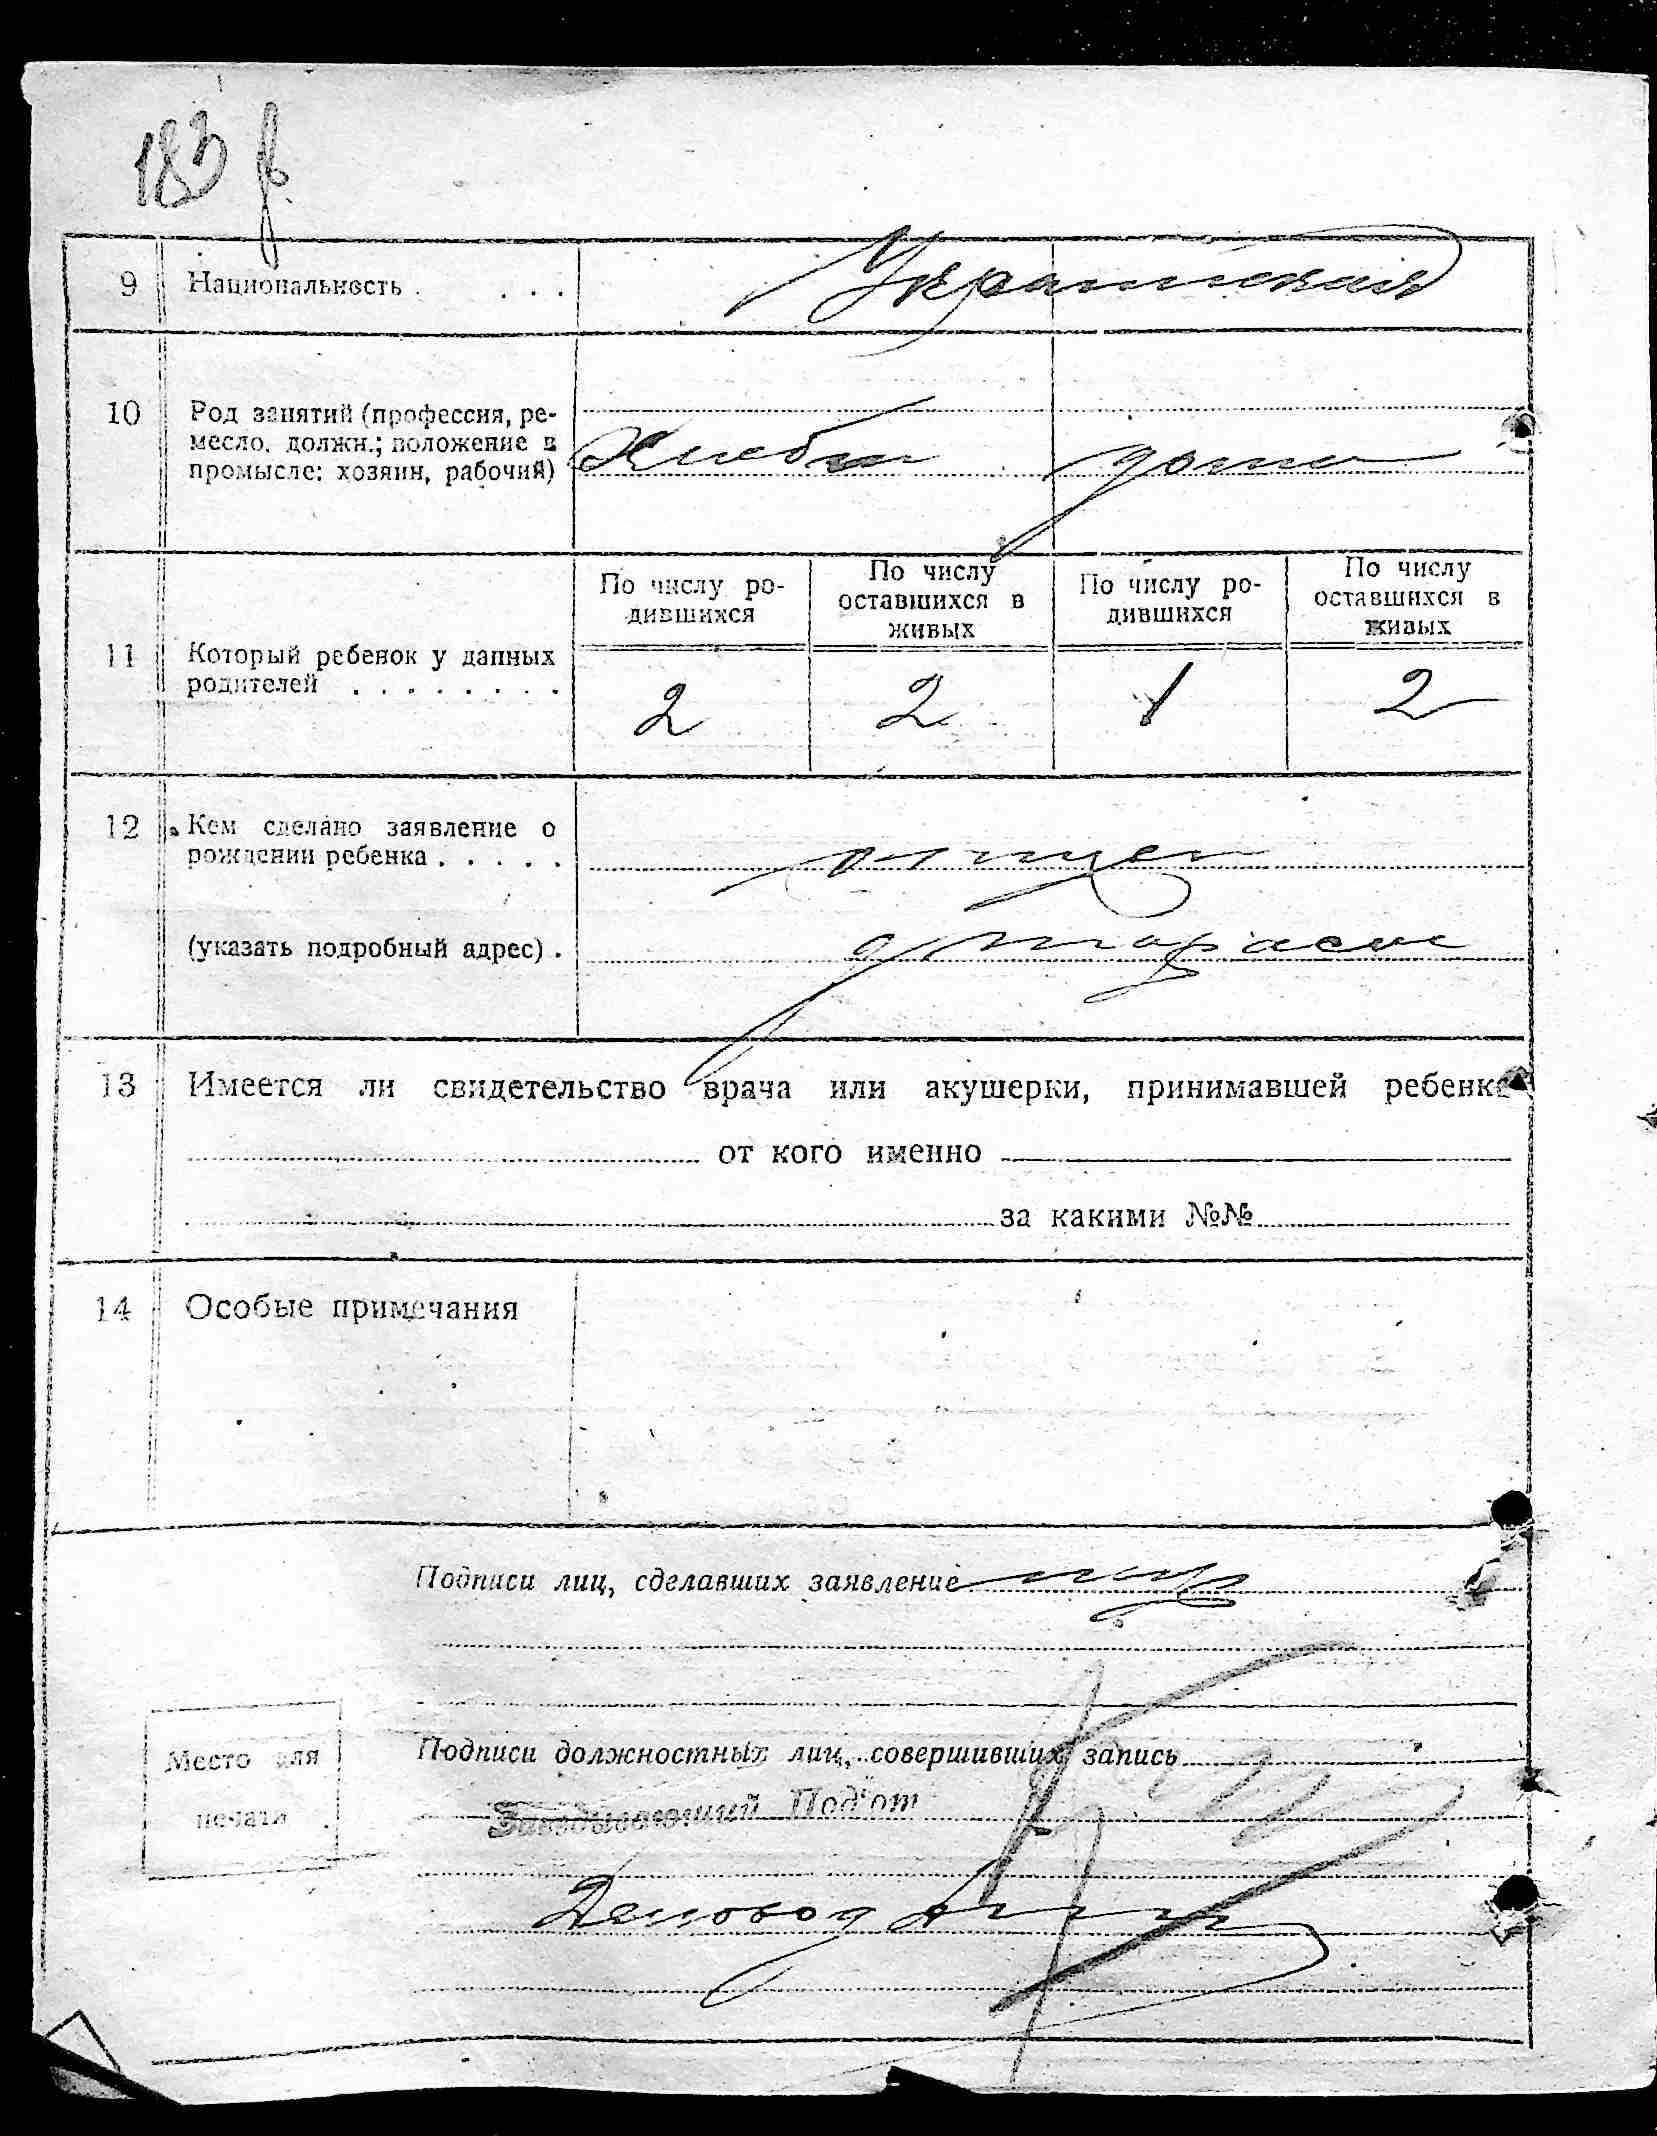 183
9 Национальность . . . . Украинская
10 Род занятий (профессия, ре-
месло, должн.; положение в
промысле: хозяин, рабочий) Хлебоп дома
По числу ро-
дившихся
По числу
оставшихся в
живых
По числу ро-
дившихся
По числу
оставшихся в
живых
11 Который ребенок у данных
родителей . . . . . . . .
2 2 1 2
12 Кем сделано заявление о
рождении ребенка . . . . . отцем
(указать подробный адрес) .
13 Имеется ли свидетельство врача или акушерки, принимавшей ребенка
от кого именно
за какими №№
14 Особые примечания
Подписи лиц, сделавших заявление
Место для
печати
Подписи должностных лиц, совершивших запись
Заведывающий Под'от
Деловод